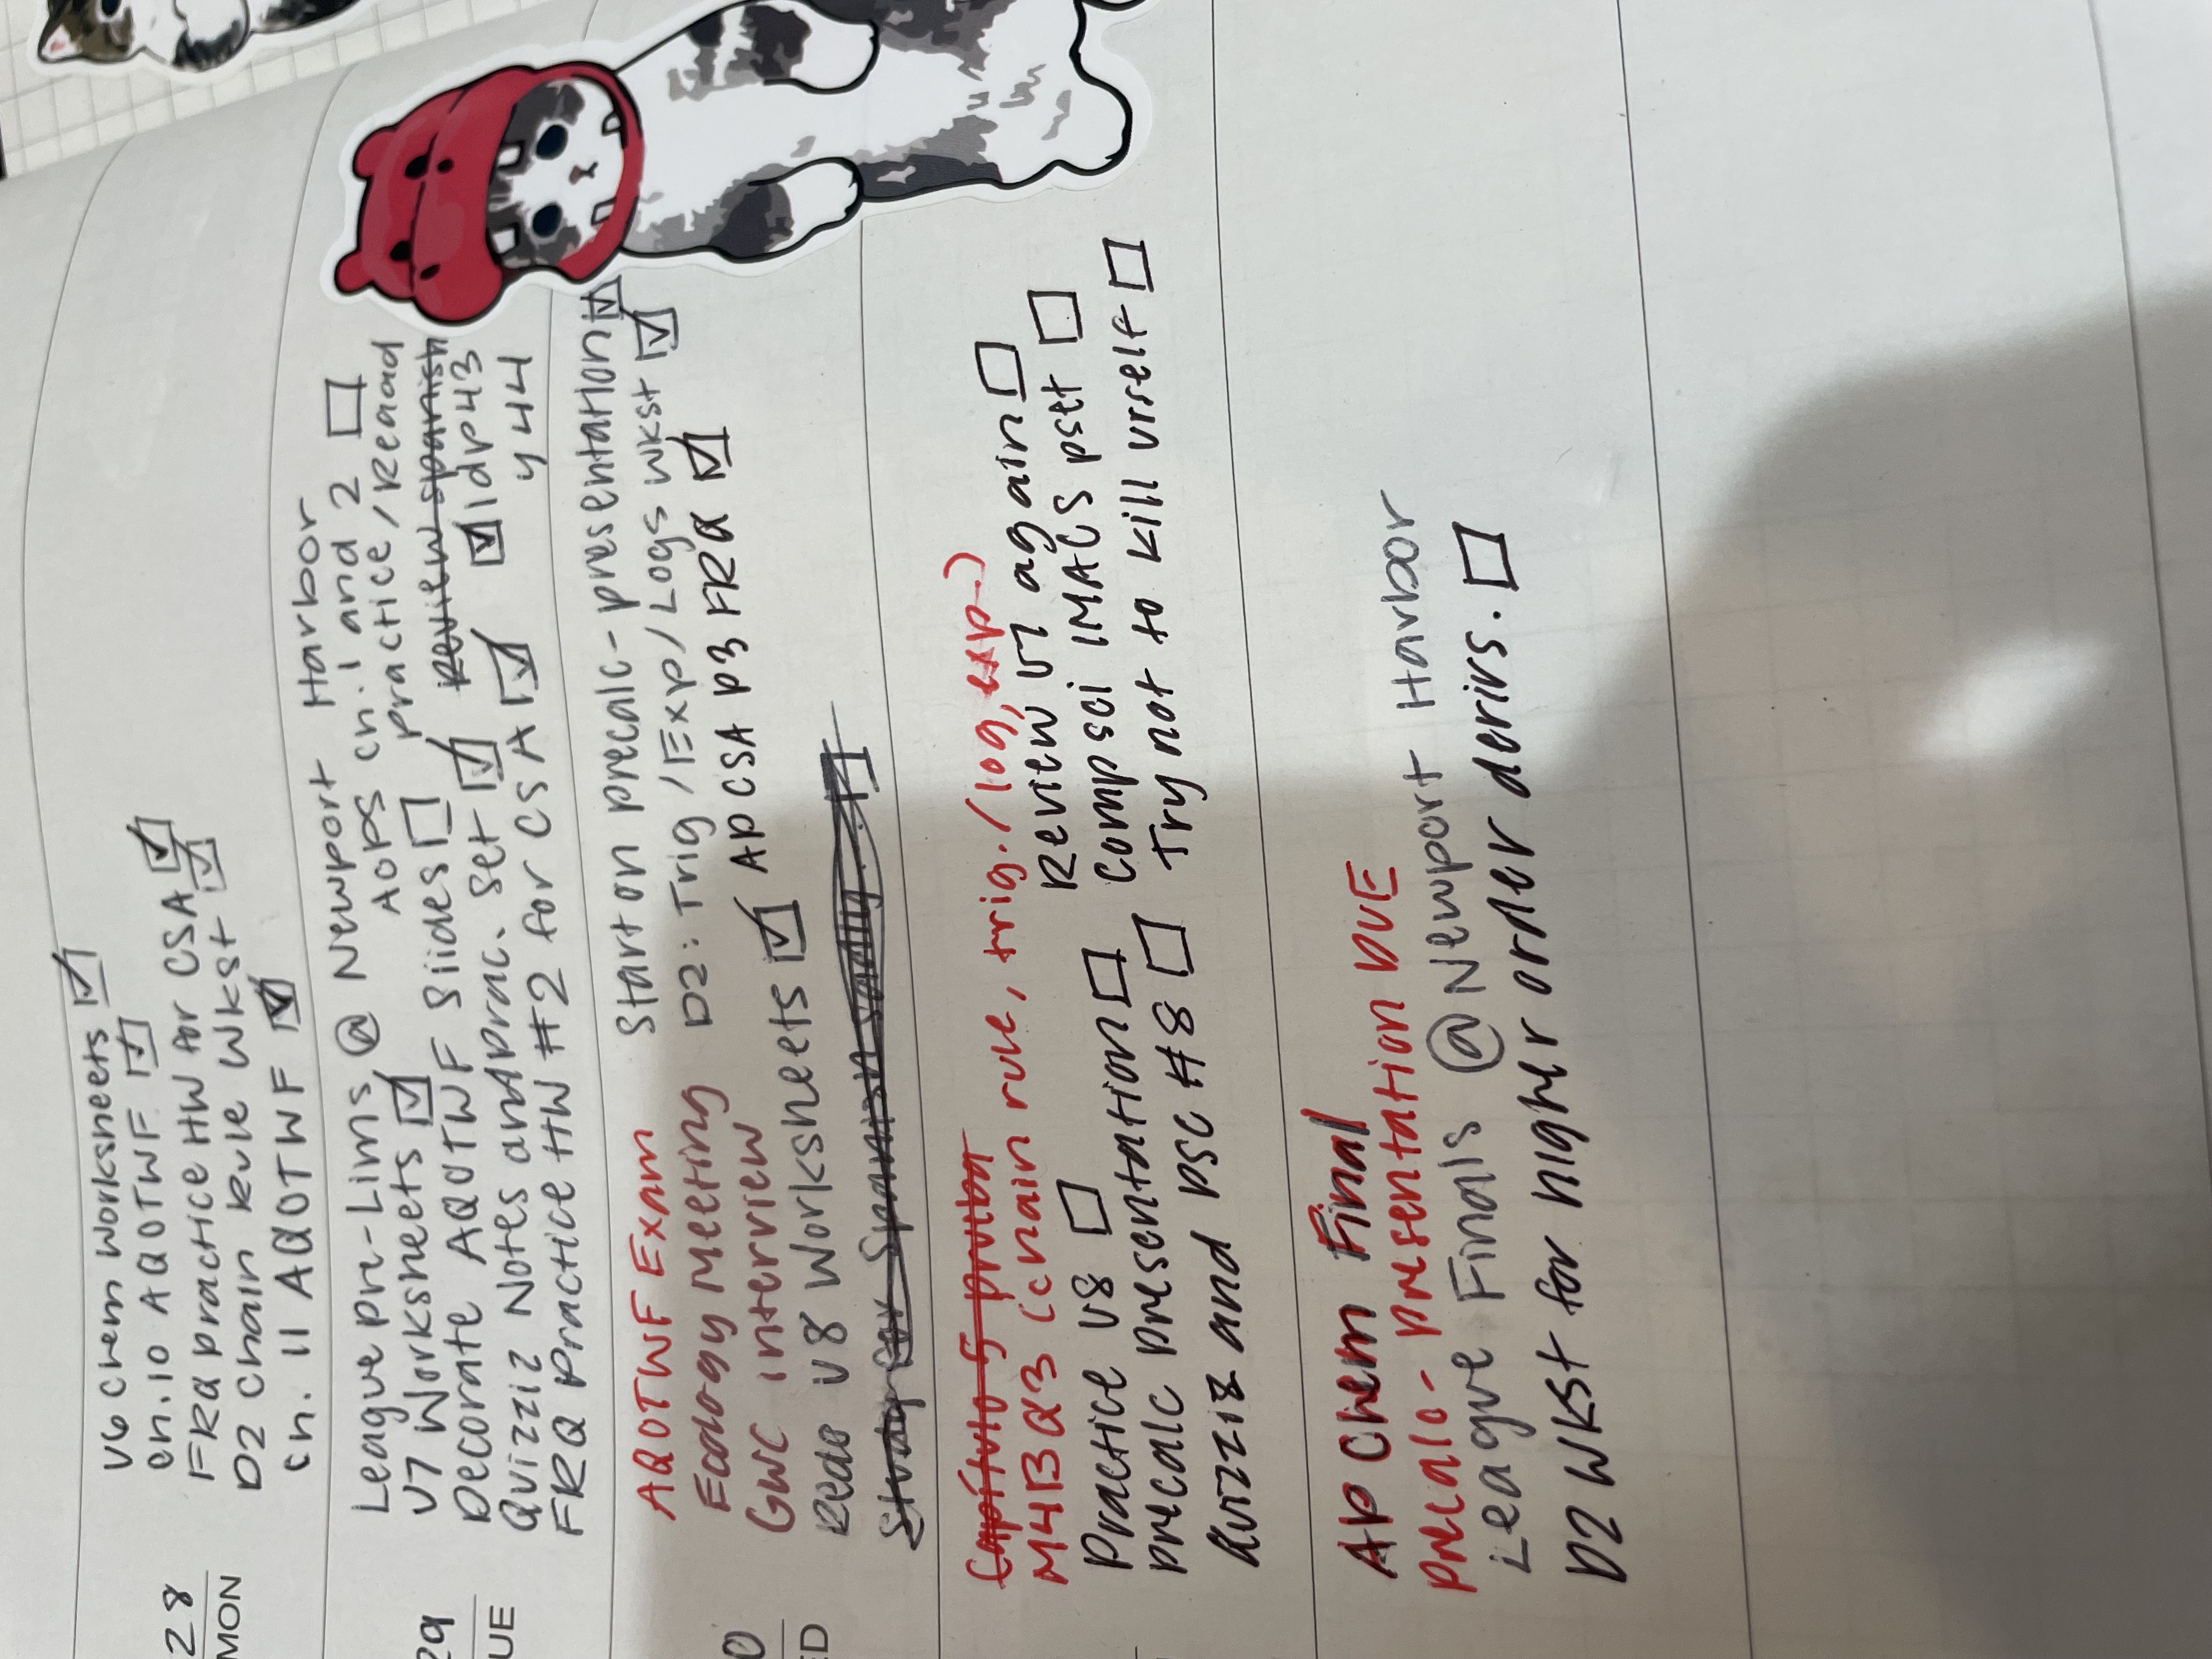 28
MON
U6 Chem Worksheets
Ch.10 AQOTWF
FRQ practice HW for CSA
D2 Chain Rule Wkst
Ch. 11 AQOTWF
29
UE
League pre-Lims @ Newport Harbor
U7 Worksheets
AOPS Ch. 1 and 2
Decorate AQOTWF Slides
practice/Read
Quizziz Notes and prac. Set
Review Spanish
FRQ Practice HW #2 for CSA
ldvp43
y 44
0
ED
AQOTWF Exam
Start on precalc-presentation
Ecology Meeting
D2: Trig/Exp/Logs Wkst
GWC interview
AP CSA P3 FRQ
Redo U8 Worksheets
Study for Spanish
M4B Q3 (chain rule, trig./log, exp.)
Practice U8
Review U7 again
precalc presentation
Compsci IMACS pset
Quizziz and PSC #8
Try not to kill urself
AP Chem Final
precalc- presentation DUE
League Finals @ Newport Harbor
D2 WKST for higher order derivs.